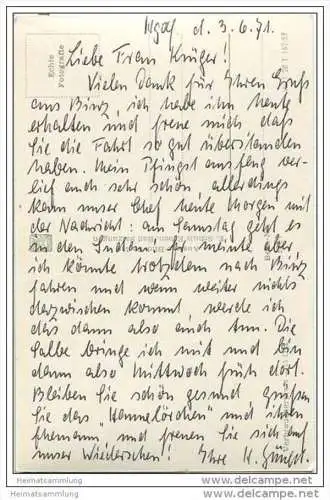 d. 3.6.71.
Liebe Frau Krüger!
Vielen Dank für Ihren Gruß
aus Binz, ich habe ihn heute
erhalten und freue mich daß
Sie die Fahrt so gut überstanden
haben. Mein Pfingstausflug ver-
lief auch sehr schön, allerdings
kam unser Chef heute Morgen mit
der Nachricht: am Samstag geht es
in den Süden, er meinte aber,
ich könnte trotzdem nach Binz
fahren und wenn weiter nichts
dazwischen kommt, werde ich
das dann also auch tun. Die
Salbe bringe ich mit und bin
dann also Mittwoch früh dort.
Bleiben Sie schön gesund, grüßen
Sie das "Hannelörchen" und ihren
Ehemann und freuen Sie sich auf
unser Wiedersehen! Ihre H.
Echte
Fotografie
Heimatsammlung
www.heimatsammlung.de
Heimatsammlung
www.heimatsammlung.de